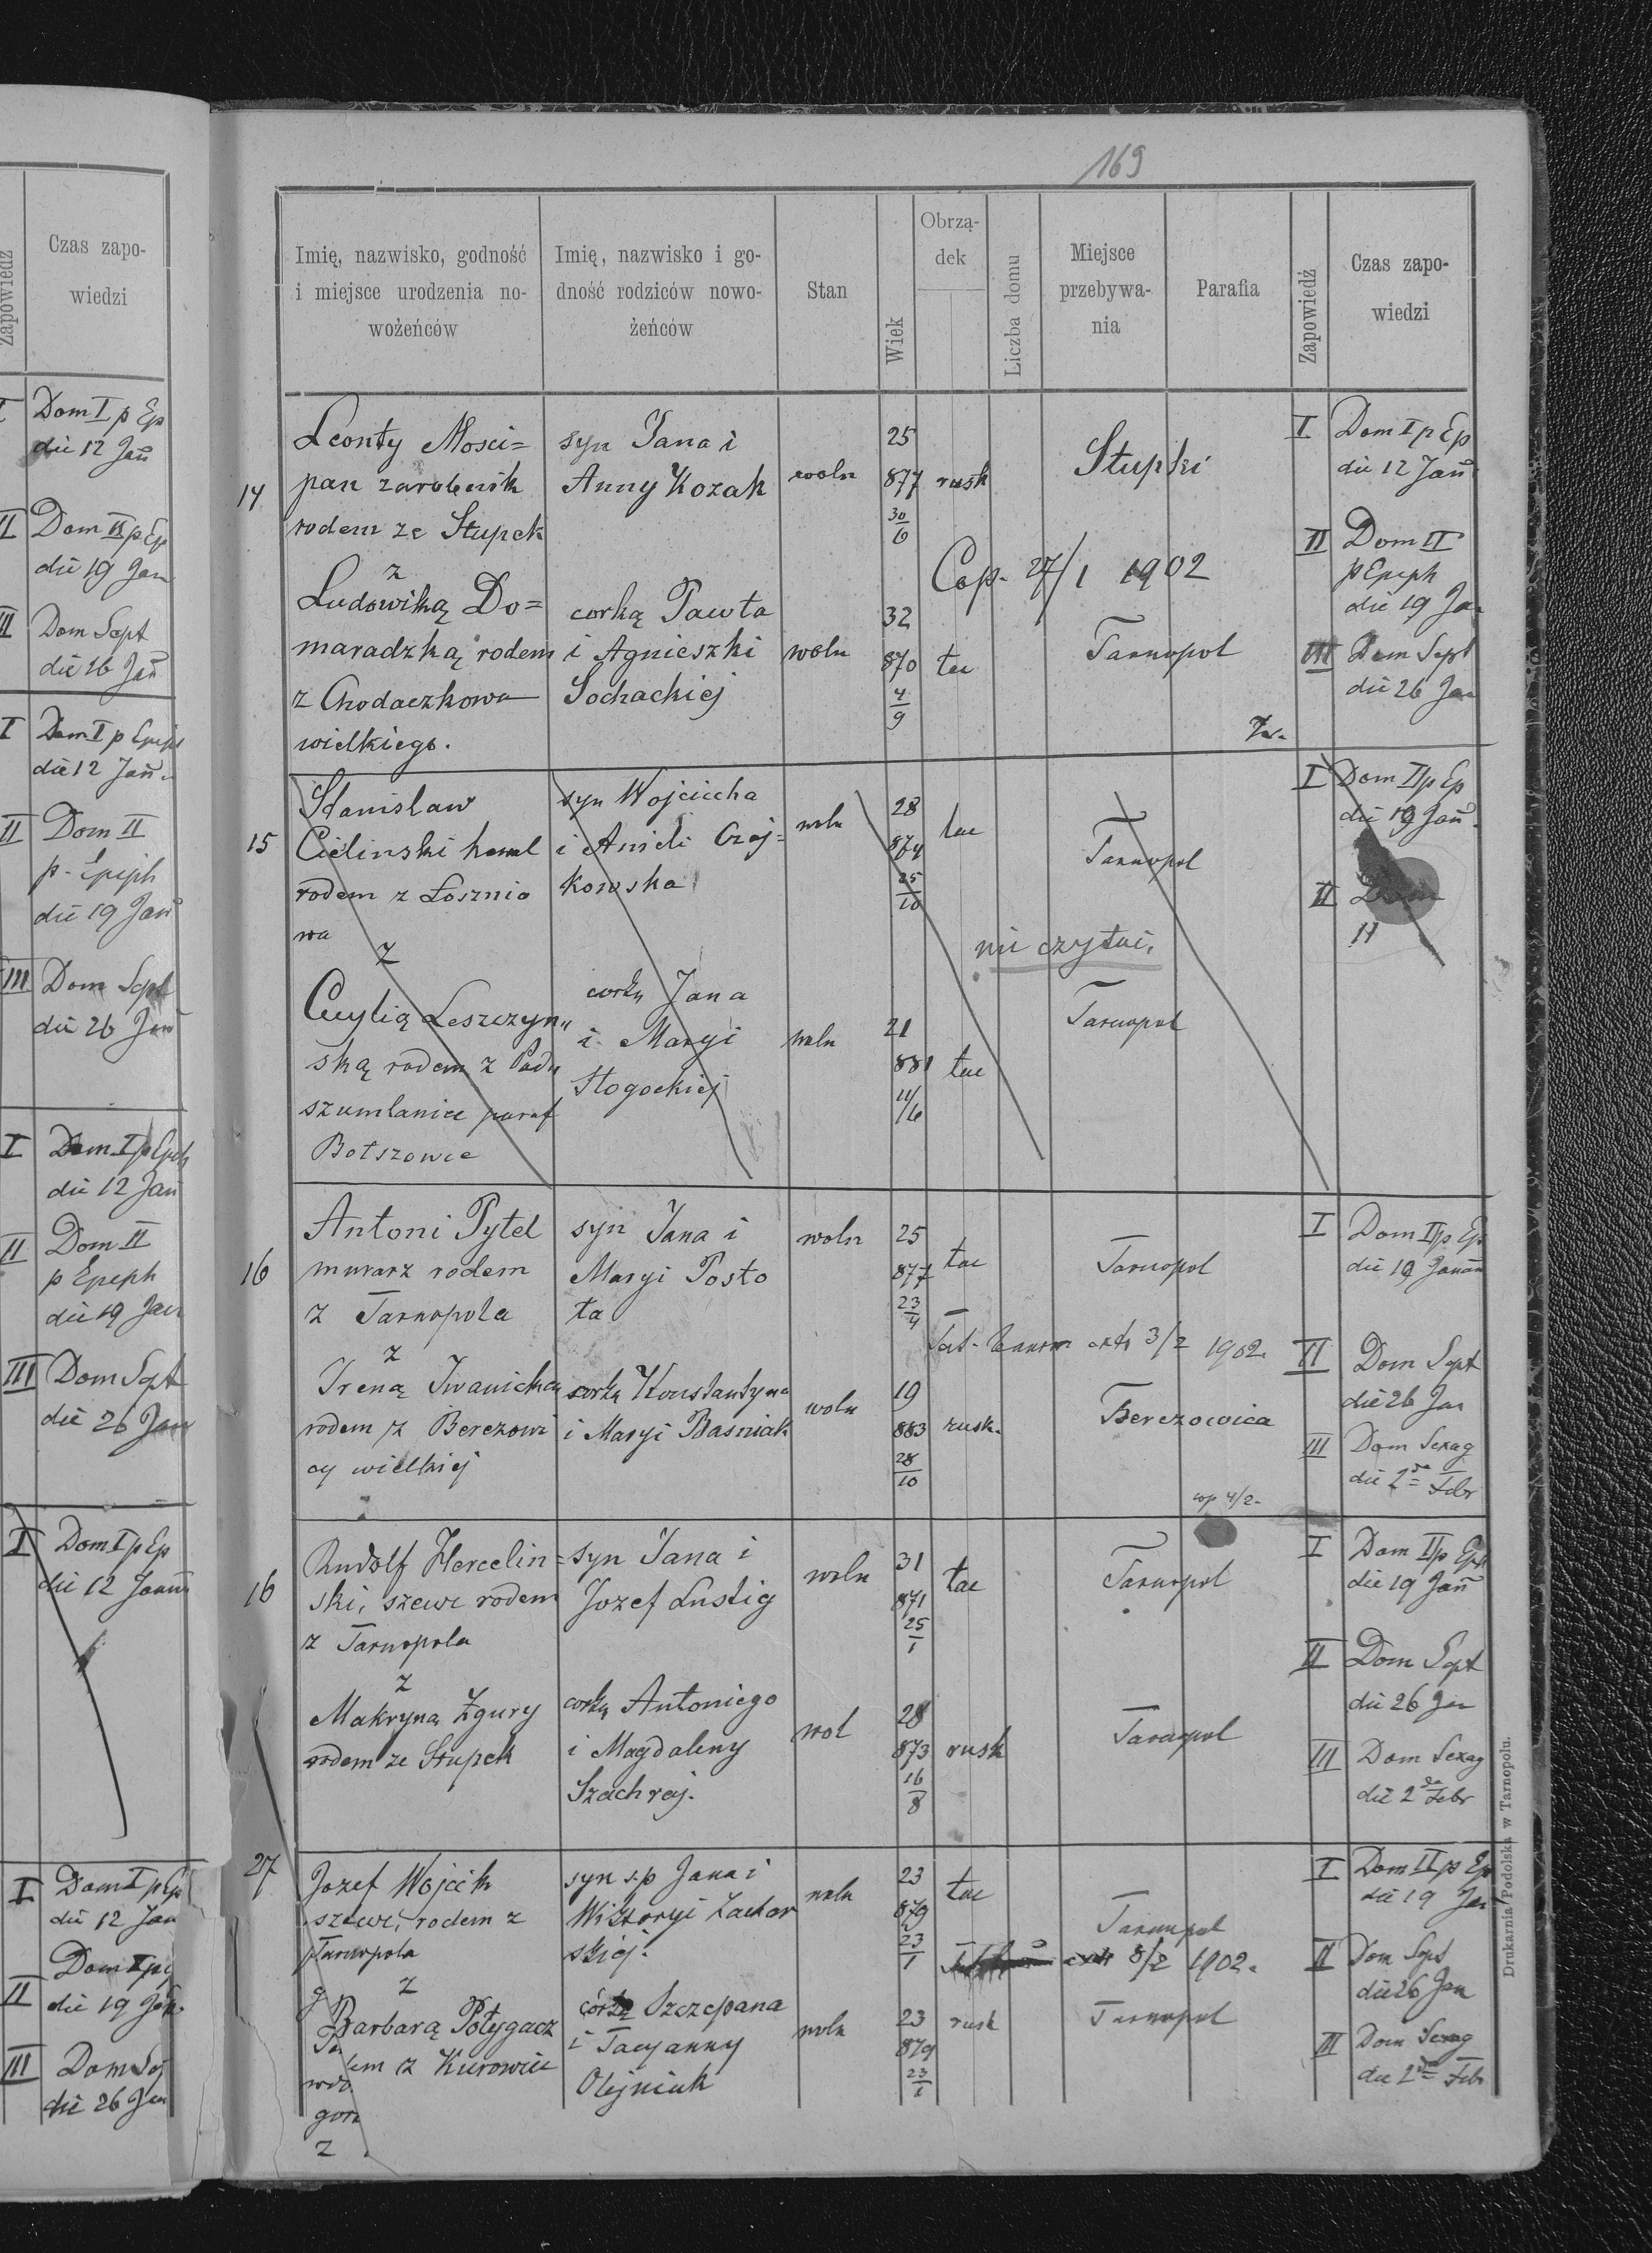 Zapowiedź
Czas zapo-
wiedzi
I Dom I p Ep
die 12 Jan
II Dom II p Ep
die 19 Jan
III Dom Sept
die 26 Jan
I Dom I p Epiph
die 12 Jan
II Dom II
p. Epiph
die 19 Jan
III Dom Sept
die 26 Jan
I Dom I p Epiph
die 12 Jan
II Dom II
p Epiph
die 19 Jan
III Dom Sept
die 26 Jan
I Dom I p Ep
die 12 Januar
I Dom I p Ep
die 12 Jan
II
die 19 Jan
III
die 26 Jan
169
Imię, nazwisko, godność
i miejsce urodzenia no-
wożeńców
Imię, nazwisko i go-
dność rodziców nowo-
żeńców
Stan
Wiek
Obrzą-
dek
Liczba domu
Miejsce
przebywa-
nia
Parafia
Zapowiedź
Czas zapo-
wiedzi
14
Leonty Mosci=
pan zarobnik
rodem ze Stupek
z
Ludowiką Do=
maradzką rodem
z Chodaczkowa
wielkiego.
syn Jana i
Anny Kozak
corką Pawła
i Agnieszki
Sochackiej
woln
woln
25
877
30/6
32
870
4/9
rusk
łac
Cop. 27/1 1902
Stupki
Tarnopol
I Dom I p Ep
die 12 Jan
II Dom II
p Epiph
die 19 Jan
III Dom Sept
die 26 Jan
15
Stanislaw
Cielinski
rodem z Łosznio
wa
z
Cecylią Leszczyn„
ską rodem z Pod„
szumlaniec paraf
Botszowce
syn Wojciecha
i Anieli Czaj=
kowska
corką Jana
i Maryi
Stogockiej
woln
woln
28
874
25/10
21
881
11/6
łac
łac
nie czytać.
Tarnopol
Tarnopol
I Dom II p Ep
die 19 Jan
II Dom
II
16
Antoni Pytel
murarz rodem
z Tarnopola
z
Ireną Iwanicką
rodem z Berezowi
cy wielkiej
syn Jana i
Maryi Posto
ła
corką Konstantyna
i Maryi Basniak
woln
woln
25
877
23/4
19
883
28/10
łac
rusk.
3/2 1902.
Tarnopol
Berezowica
cop 4/2.
I Dom II p Ep
die 19 Januar
II Dom Sept
die 26 Jan
III Dom Sexag
die 2da Febr
16
Rudolf Hercelin=
ski, szewc rodem
z Tarnopola
z
Makryną Zgury
rodem ze Stupek
syn Jana i
Jozef Lustig
corką Antoniego
i Magdaleny
Szachraj.
woln
wol
31
871
25/1
28
873
16/8
łac
rusk
Tarnopol
Tarnopol
I Dom II p Eph
die 19 Jan
II Dom Sept
die 26 Jan
III Dom Sexag
die 2da Febr
27
Jozef Wojcik
szewc, rodem z
Tarnopola
z
Barbarą Połygacz
z Kurowiec
gorz
z
syn s.p Jana i
Wiktoryi Zachar
skiej.
córką Szczepana
i Tacyanny
Olejniuk
woln
woln
23
879
23/1
23
879
23/1
łac
rusk
3/2 1902.
Tarnopol
Tarnopol
I Dom II p Ep
die 19 Jan
II Dom Sept
die 26 Jan
III Dom Sexag
die 2da Febr
Drukarnia Podolska w Tarnopolu.